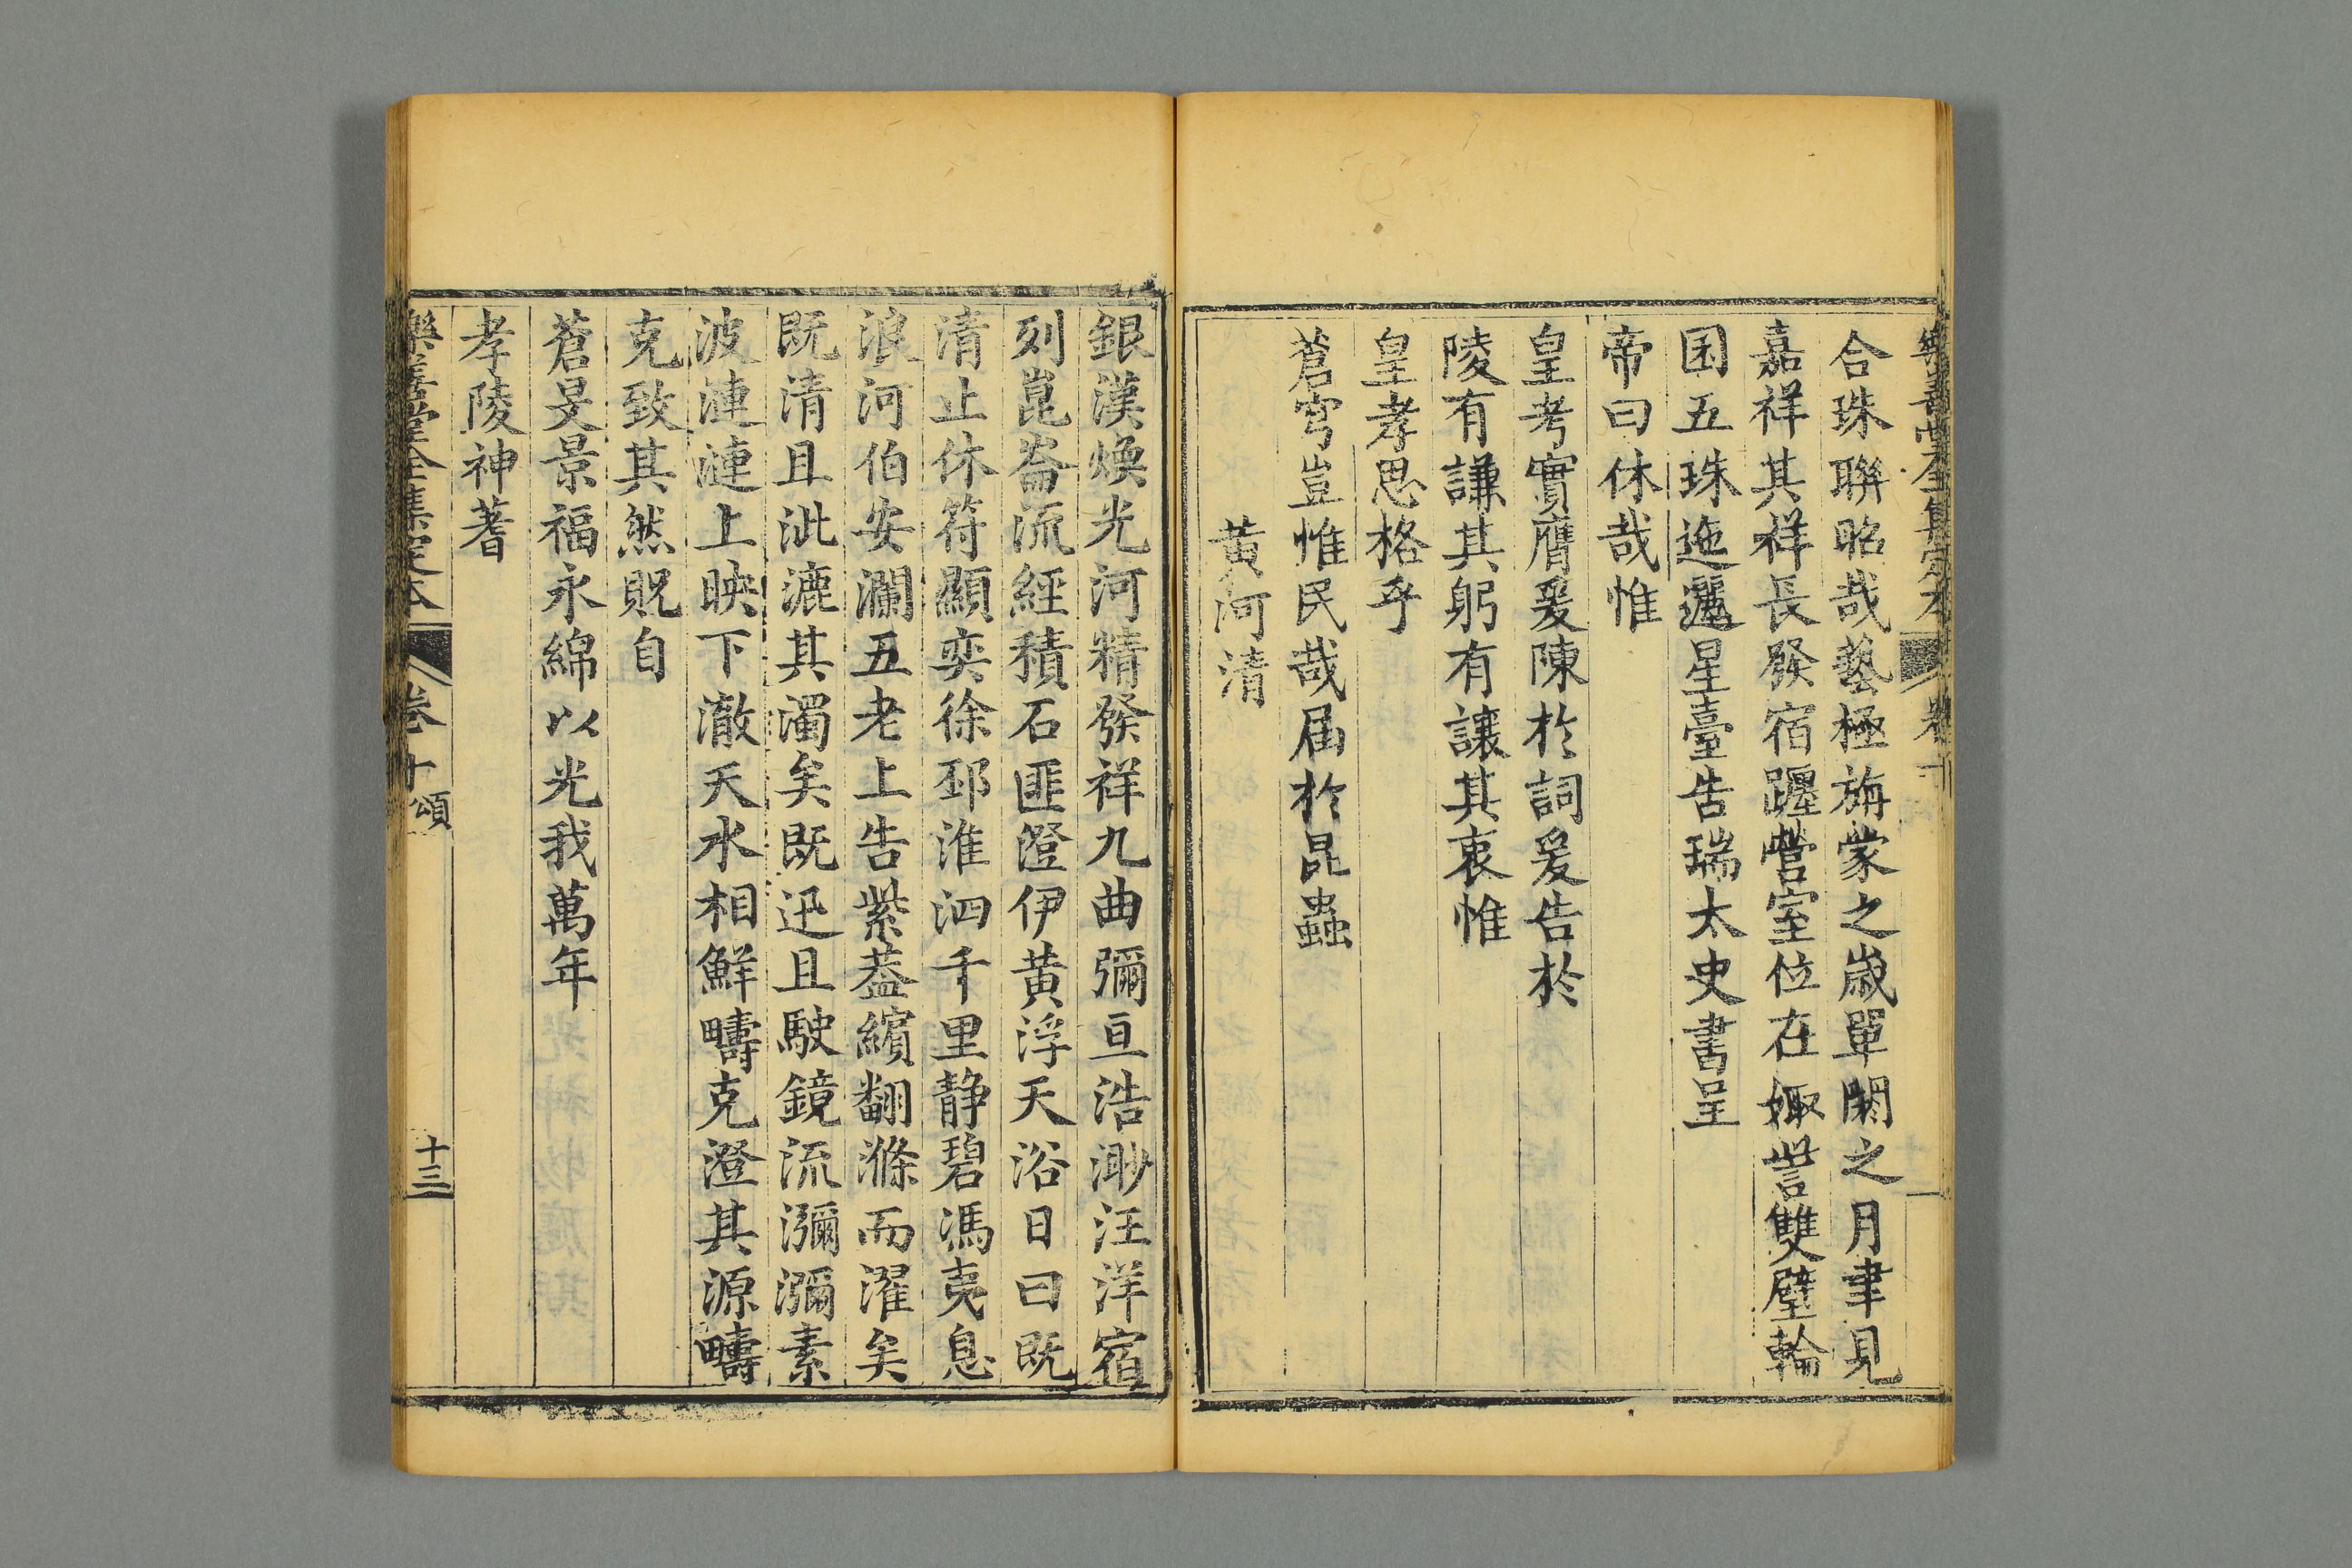 樂善堂全集定本 卷十
合珠聨昭哉藝極旃蒙之歲單閼之月聿見
嘉祥其祥長發宿躔營室位在娵訾雙璧輪
囷五珠迤邐星臺告瑞太史書呈
帝曰休哉惟
皇考實膺爰陳於詞爰告於
陵有謙其躬有讓其衷惟
皇孝思格乎
蒼穹豈惟民哉届於昆蟲
黃河清
銀漢煥光河精發祥九曲彌亘浩渺汪洋宿
列崑崙流經積石匪澄伊黃浮天浴日曰既
清止休符顯奕徐邳淮泗千里静碧馮夷息
浪河伯安瀾五老上告紫葢繽翻滌而濯矣
既清且泚漉其濁矣既迅且駛鏡流瀰瀰素
波漣漣上映下澈天水相鮮疇克澄其源疇
克致其然貺自
蒼旻景福永綿以光我萬年
孝陵神蓍
樂善堂全集定本 卷十 頌 十三